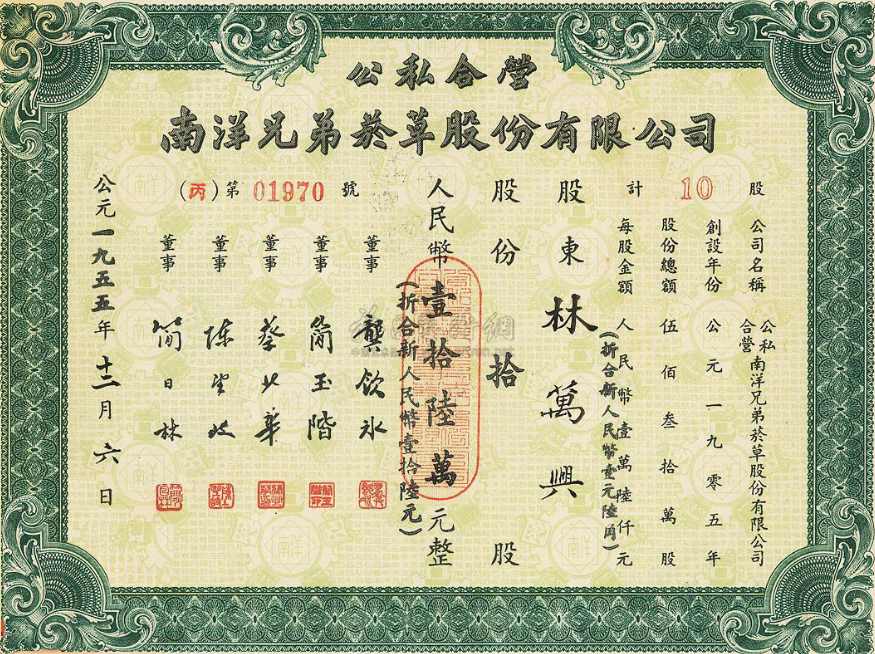 公私合營
南洋兄弟菸草股份有限公司
計 10 股
公司名稱 公私合營南洋兄弟菸草股份有限公司
創設年份 公元一九零五年
股份總額 伍佰叁拾萬股
每股金額 人民幣壹萬陸仟元
(折合新人民幣壹元陸角)
股東 林萬興
股份 拾 股
人民幣壹拾陸萬元整
(折合新人民幣壹拾陸元)
(丙)第 01970 號
董事 龔飲冰
董事 簡玉階
董事
董事
董事 簡日林
公元一九五五年十二月六日